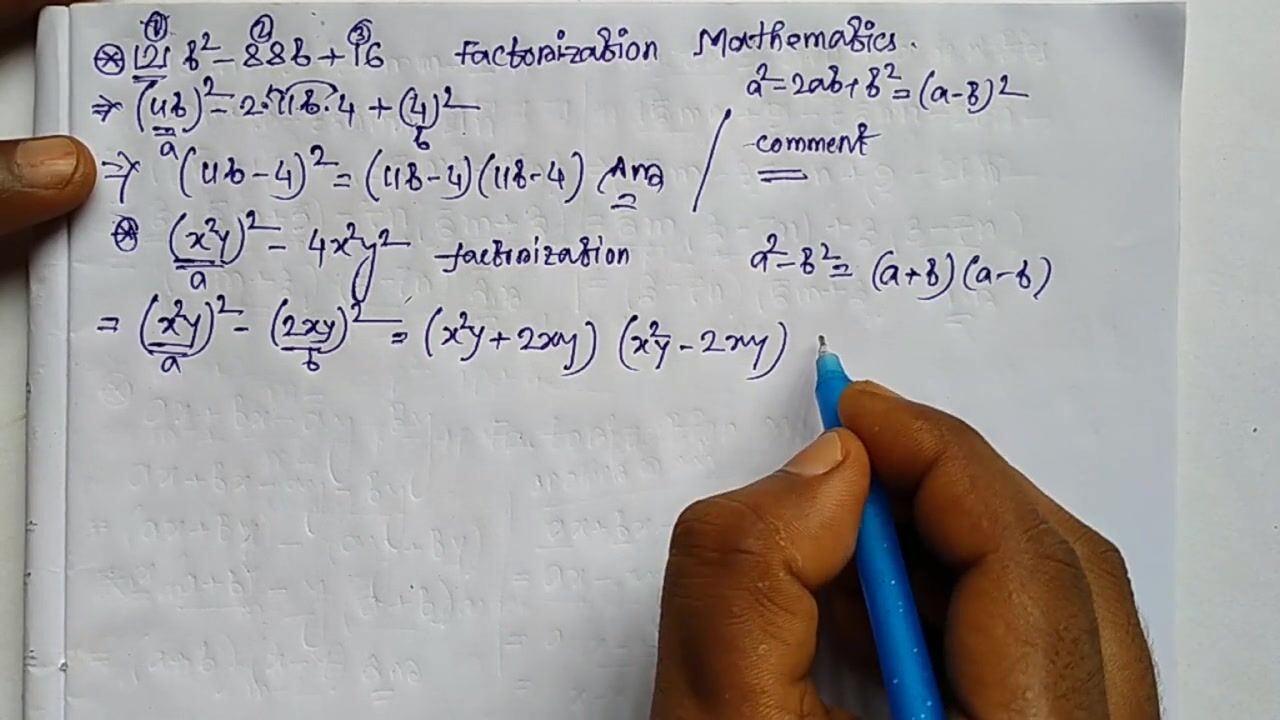 ① ② ③
⊛ 121 b² - 88b + 16 Factorization Mathematics.
a² - 2ab + b² = (a-b)²
⇒ (11b)² - 2·11b·4 + (4)²
a b
comment
⇒ (11b - 4)² = (11b - 4)(11b - 4) Ans
⊛ (x²y)² - 4x²y² factorization
a
a² - b² = (a+b)(a-b)
= (x²y)² - (2xy)² = (x²y + 2xy) (x²y - 2xy)
a b